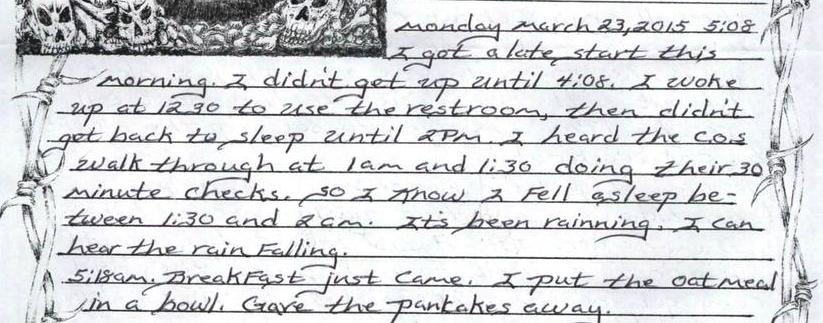 Monday March 23, 2015 5:08
I got a late start this
morning. I didn't get up until 4:08. I woke
up at 12:30 to use the restroom, then didn't
get back to sleep until 2PM. I heard the C.O.s
walk through at 1am and 1:30 doing their 30
minute checks. so I know I fell asleep be-
tween 1:30 and 2am. It's been rainning. I can
hear the rain falling.
5:18am. Breakfast just came. I put the oatmeal
in a bowl. Gave the pantakes away.